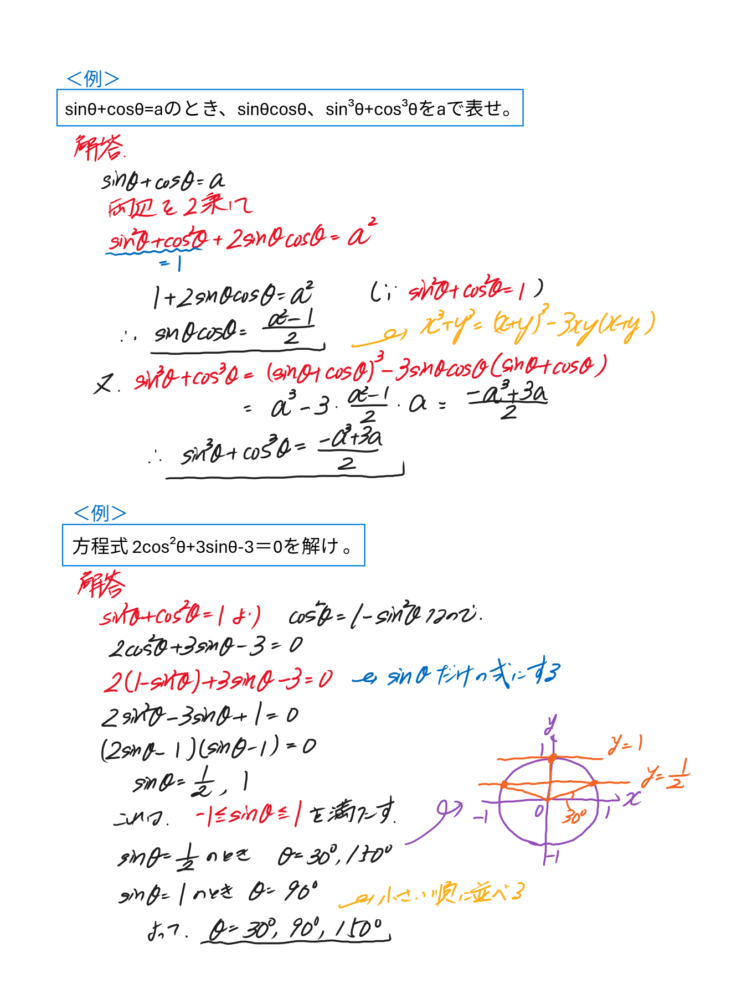 ＜例＞
sinθ+cosθ=aのとき、sinθcosθ、sin³θ+cos³θをaで表せ。
解答.
sinθ+cosθ=a
両辺を2乗して
sin²θ+cos²θ+2sinθcosθ=a²
=1
1+2sinθcosθ=a² (∵ sin²θ+cos²θ=1)
∴ sinθcosθ= (a²-1)/2
x³+y³=(x+y)³-3xy(x+y)
又. sin³θ+cos³θ=(sinθ+cosθ)³-3sinθcosθ(sinθ+cosθ)
= a³-3・(a²-1)/2・a = (-a³+3a)/2
∴ sin³θ+cos³θ= (-a³+3a)/2
＜例＞
方程式 2cos²θ+3sinθ-3＝0を解け 。
解答
sin²θ+cos²θ=1 より cos²θ=1-sin²θ なので.
2cos²θ+3sinθ-3=0
2(1-sin²θ)+3sinθ-3=0 sinθだけの式にする
2sin²θ-3sinθ+1=0
(2sinθ-1)(sinθ-1)=0
sinθ=1/2, 1
これは. -1≦sinθ≦1 を満たす.
sinθ=1/2 のとき θ=30°, 150°
sinθ=1 のとき θ=90° 小さい順に並べる
よって. θ=30°, 90°, 150°
y
1
y=1
y=1/2
-1
0
30°
1
x
-1